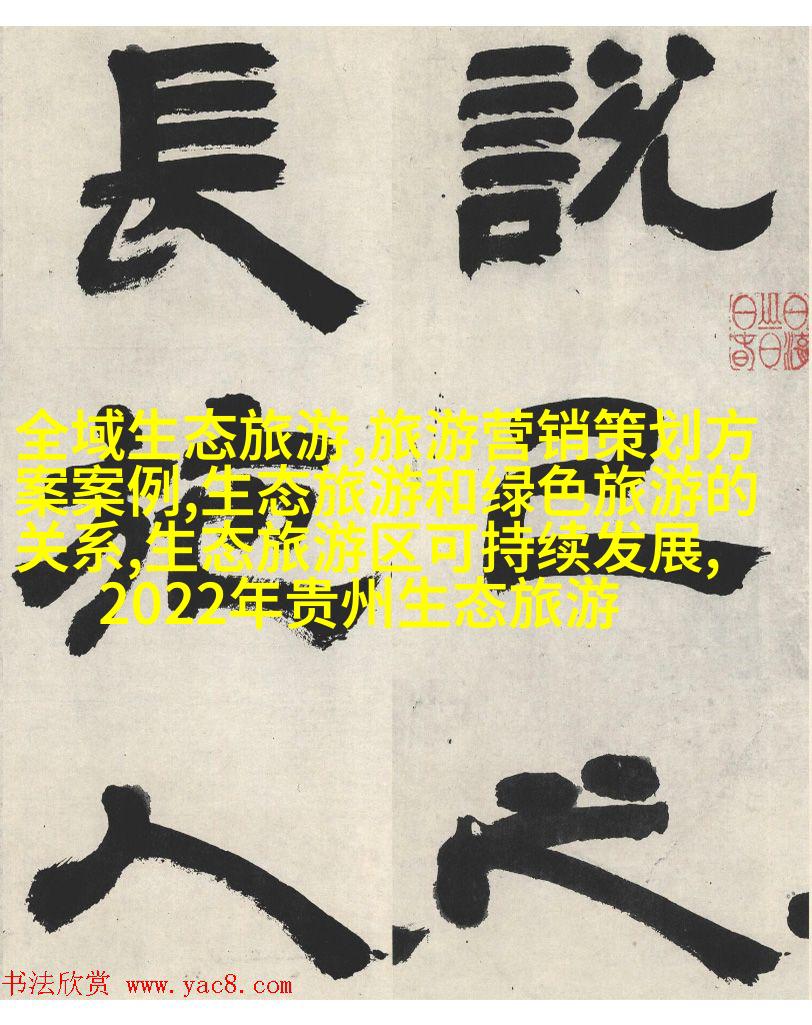 説己之
長施人
全域生态旅游,旅游营销策划方
案案例,生态旅游和绿色旅游的
关系,生态旅游区可持续发展,
2022年贵州生态旅游
书法欣赏 www.yac8.com